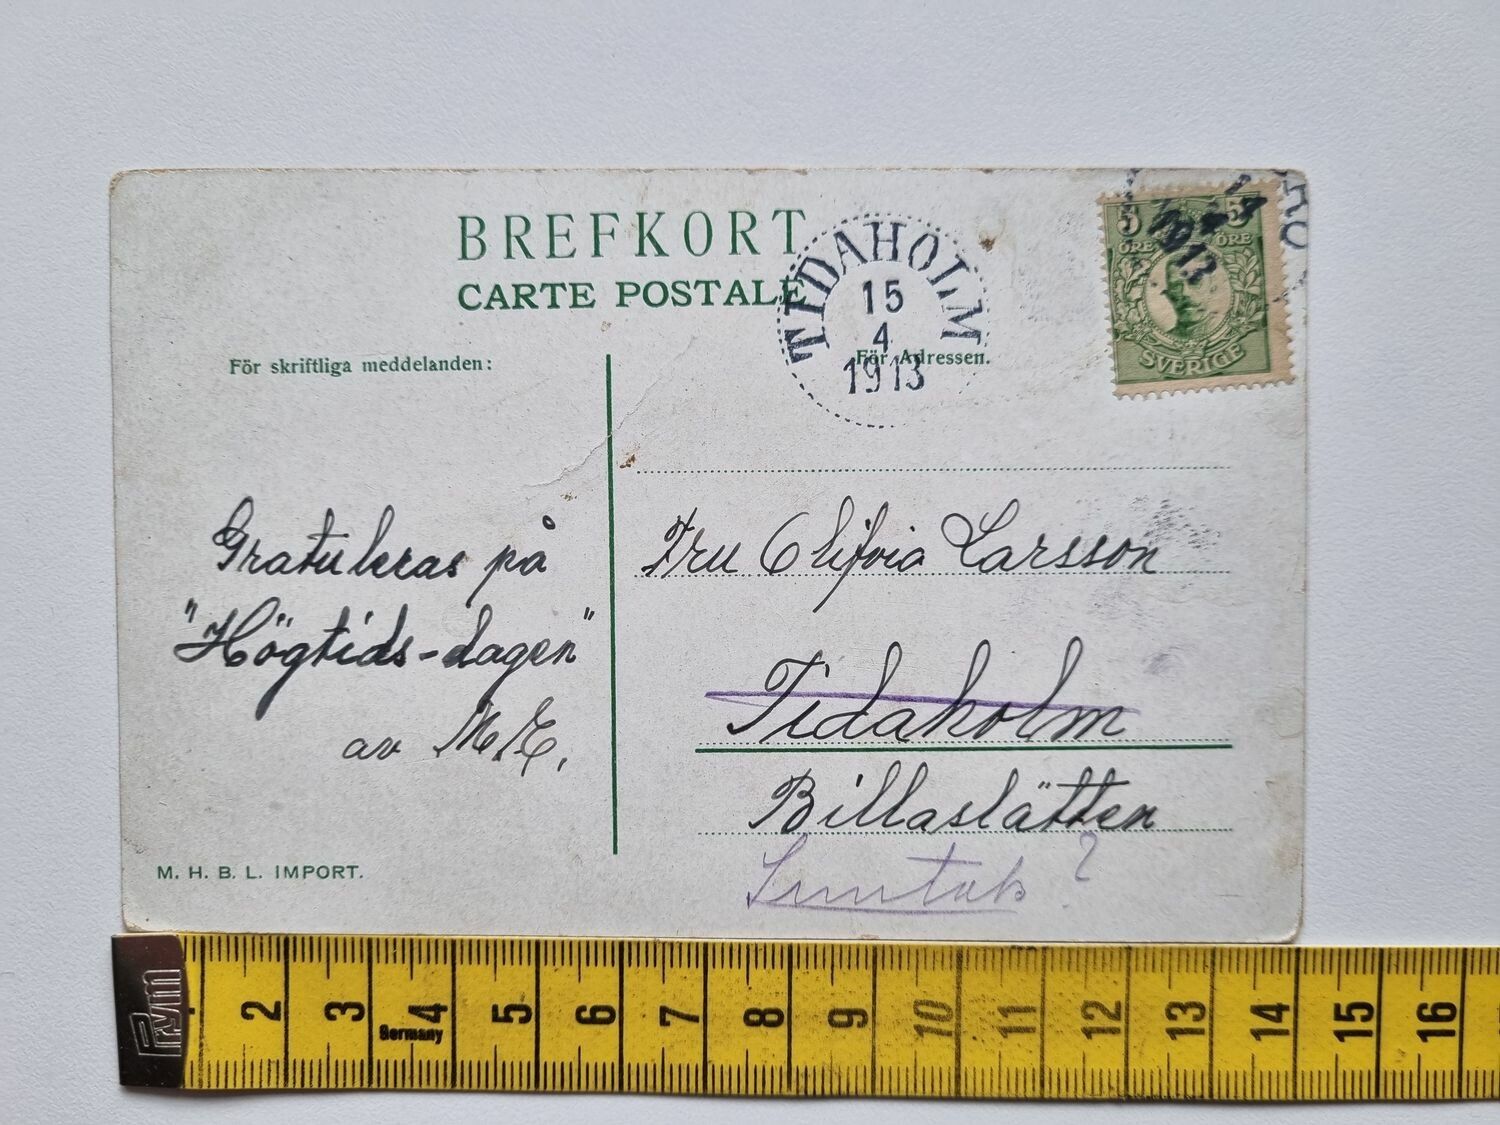 BREFKORT
CARTE POSTALE
TIDAHOLM
15
4
1913
5 5
ÖRE ÖRE
1913
SVERIGE
För skriftliga meddelanden:
För Adressen.
Gratuleras på
"Högtids-dagen"
av M.E.
Fru Olifvia Larsson
Tidaholm
Billaslätten
Suntak?
M. H. B. L. IMPORT.
Prym
2 3 4 5 6 7 8 9 10 11 12 13 14 15 16
Germany